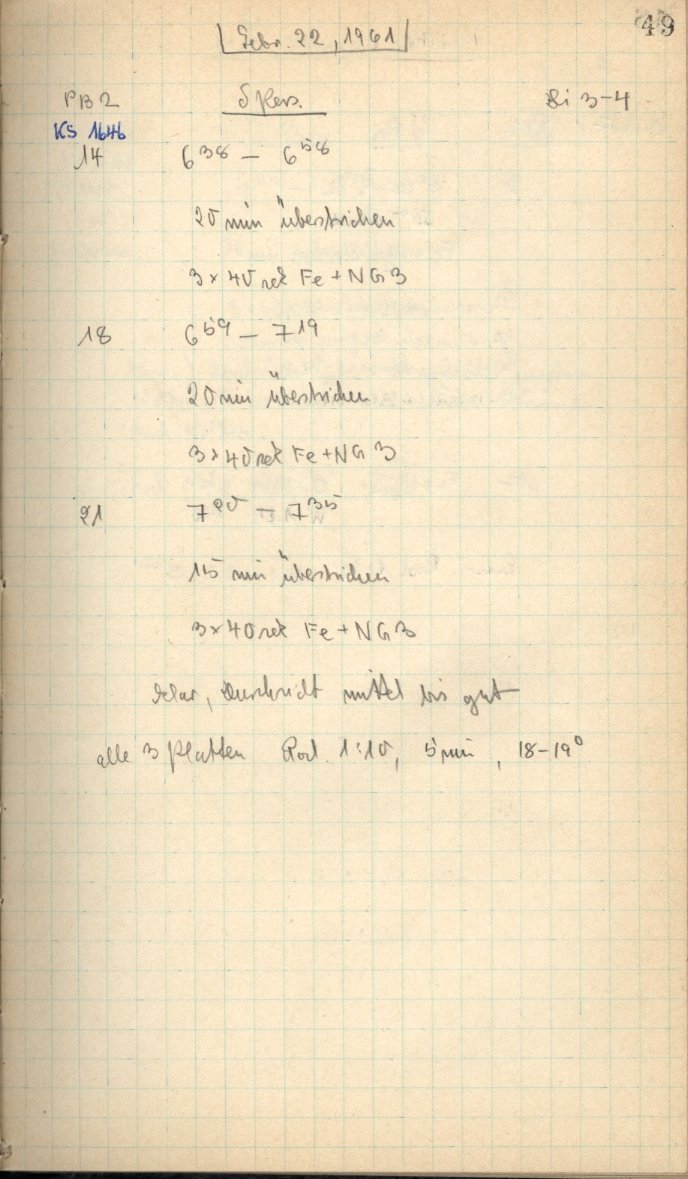 49
Febr. 22, 1961
PB2 δ Pers. Bi 3-4
KS 1646
14 6³⁸ – 6⁵⁸
20 min überstrichen
3×40 sek Fe+NG3
18 6⁵⁹ – 7¹⁹
20 min überstrichen
3×40 sek Fe+NG3
21 7²⁰ – 7³⁵
15 min überstrichen
3×40 sek Fe+NG3
klar, Durchsicht mittel bis gut
alle 3 Platten Rod. 1:10, 5 min, 18–19°